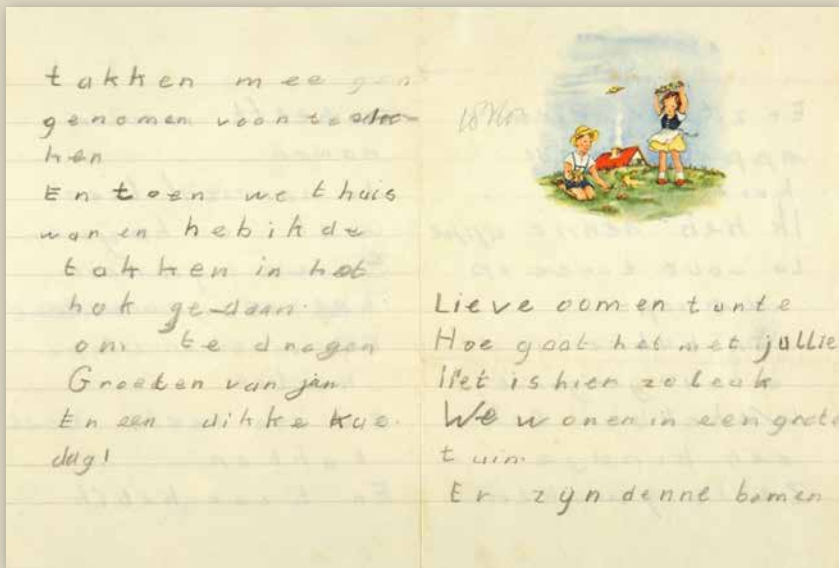 takken mee
genomen voor te sto-
ken
En toen we thuis
waren heb ik de
takken in het
hok ge-daan.
om te drogen
Groeten van jan
En een dikke kus.
dag!
Lieve oom en tante
Hoe gaat het met jullie
Het is hier zo leuk
We wonen in een grote
tuin
Er zijn denne bomen